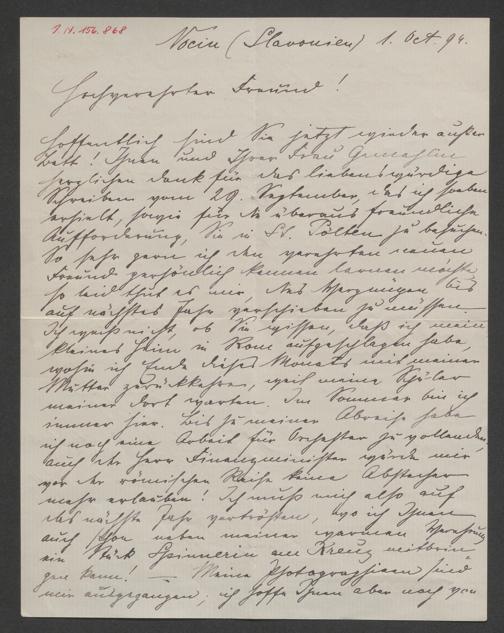 I.N. 156.868
Vocin (Slavonien) 1. Oct. 94.
Hochverehrter Freund!
Hoffentlich sind Sie jetzt wieder außer
Bett! Ihnen und Ihrer Frau Gemahlin
herzlichen Dank für das liebenswürdige
Schreiben vom 29. September, das ich soeben
erhielt, sowie für die überaus freundliche
Aufforderung, Sie in St. Pölten zu besuchen.
So sehr gern ich den verehrten neuen
Freund persönlich kennen lernen möchte,
so leid thut es mir, das Vergnügen bis
auf nächstes Jahr verschieben zu müssen.
Ich weiß nicht, ob Sie wissen, daß ich mein
kleines Heim in Rom aufgeschlagen habe,
wohin ich Ende dieses Monats mit meiner
Mutter zurückkehre, weil meine Schüler
meiner dort warten. Im Sommer bin ich
immer hier. Bis zu meiner Abreise habe
ich noch eine Arbeit für Orchester zu vollenden,
auch der Herr Finanzminister würde mir
vor der römischen Reise keine Abstecher
mehr erlauben! Ich muß mich also auf
das nächste Jahr vertrösten, wo ich Ihnen
auch schon neben meiner warmen Verehrung
ein Stück Spinnerin am Kreuz mitbrin-
gen kann! — Meine Photographien sind
mir ausgegangen; ich hoffe Ihnen aber noch von